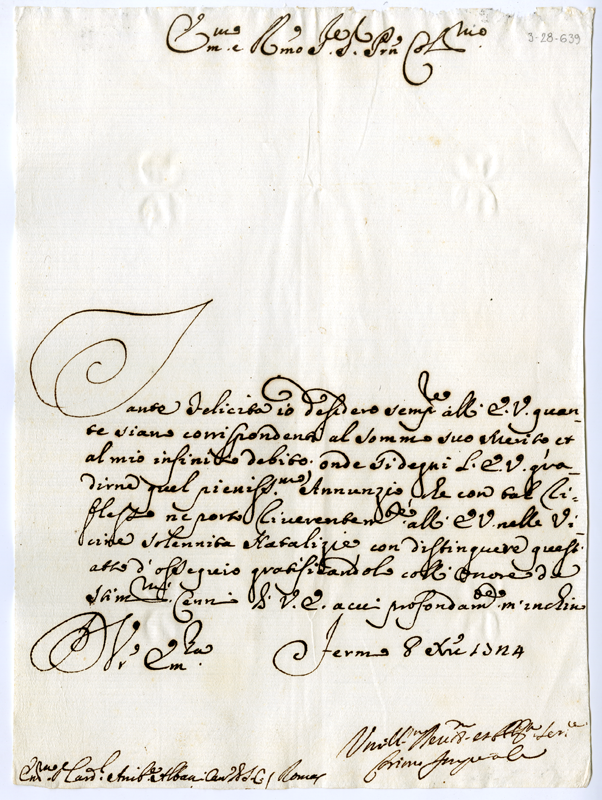 3-28-639
Em.mo e R.mo Sig.r Sig.r Prn Col.mo
Tante Felicita io desidero sempre all' E.V. quan-
te siano corrispondenti al sommo suo Merito et
al mio infinito debito. onde si degni l'E.V. gra-
dirne quel pieniss.mo Annunzio che con tal Ri-
flesso ne porto Riverentem.te all' E.V. nelle Vi-
cine Solennita Natalizie con distinguere quest'
atto d'ossequio gratificandolo coll' onore de
stim.mi Cenni di V.E. a cui profondam.te m'inchino
Di V.ra Em.za
Fermo 8 Xbre 1714
Umill.mo Dev.mo et Obblig.mo Ser.re
Em.mo Card. Annib.e Albani Roma